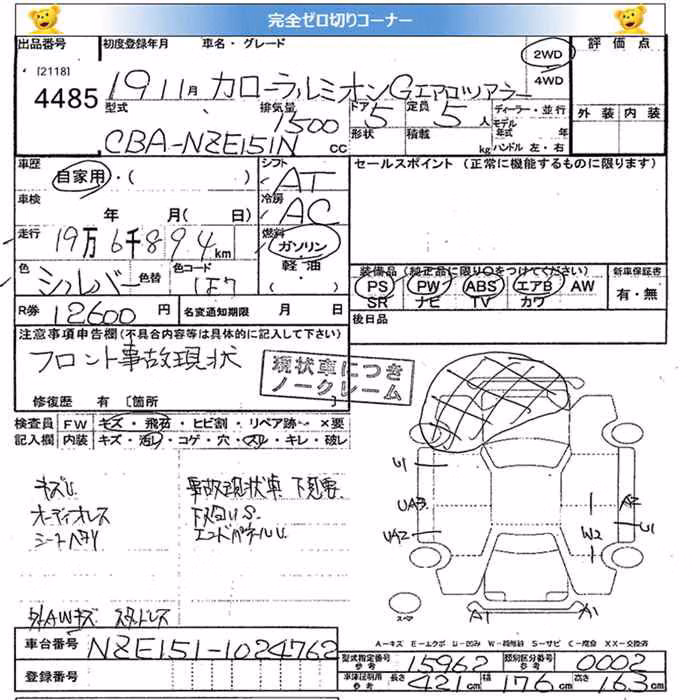 完全ゼロ切りコーナー
出品番号 初度登録年月 車名・グレード 評価点
[2118]
4485 19 11月 カローラルミオンGエアロツアラー 2WD 4WD
型式 排気量 ドア 定員 ディーラー・並行 外装 内装
CBA-NZE151N 1500 cc 5 5人 モデル年式 年
形状 積載 kg ハンドル 左・右
車歴 シフト セールスポイント (正常に機能するものに限ります)
自家用・( ) AT
車検 冷房
年 月( 日) AC
走行 燃料
19万6千894km ガソリン・
色 シルバー 色替 色コード 軽油・( )
装備品(純正品に限り○をつけてください) 新車保証書
PS PW ABS エアB AW 有・無
SR ナビ TV カワ
R券 12600円 名変通知期限 月 日 後日品
注意事項申告欄(不具合内容等は具体的に記入して下さい)
フロント事故現状
現状車につき
ノークレーム
修復歴 有 〔箇所
検査員 FW キズ・飛石・ヒビ割・リペア跡・×要
記入欄 内装 キズ・汚レ・コゲ・穴・スレ・キレ・破レ
キズU 事故現状車
オーディオレス 下回りU S.
シートヘタリ エンドパネルU.
U1
UA3 A2
UA2 W2 U1
スペア
A1 A1
外AWキズ スタドレス
A-キズ E-エクボ U-凹み W-補修跡 S-サビ C-腐食 XX-交換済
車台番号 NZE151-1024762
型式指定番号 参考 15962 類別区分番号 参考 0002
登録番号
車庫証明用 参考 長さ 421cm 幅 176cm 高さ 163cm